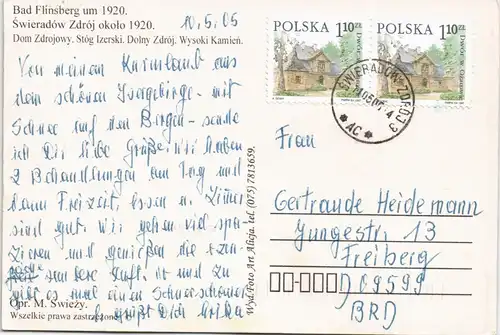 Bad Flinsberg um 1920.
Świeradów Zdrój około 1920.
Dom Zdrojowy. Stóg Izerski. Dolny Zdrój. Wysoki Kamień.
10.5.05
Von meinem Kururlaub aus
dem schönen Isergebirge - mit
Schnee auf den Bergen - sende
ich Dir liebe Grüße. Wir haben
2 Behandlungen am Tag und
dann Freizeit, Essen u. Zimmer
sind gut. Wir gehen viel spa-
zieren und genießen die
saubere Luft. und zu
gibt es mal einen Schneeschauer
grüßt Dich
Opr. M. Świeży.
Wszelkie prawa zastrzeżone
Wyd. Foto Art. Alicja. tel. (075) 7813659.
POLSKA 1,10 ZŁ
POLSKA 1,10 ZŁ
ŚWIERADÓW-ZDRÓJ 3
* AC *
Frau
Gertraude Heidemann
Jungestr. 13
Freiberg
D 09599
BRD